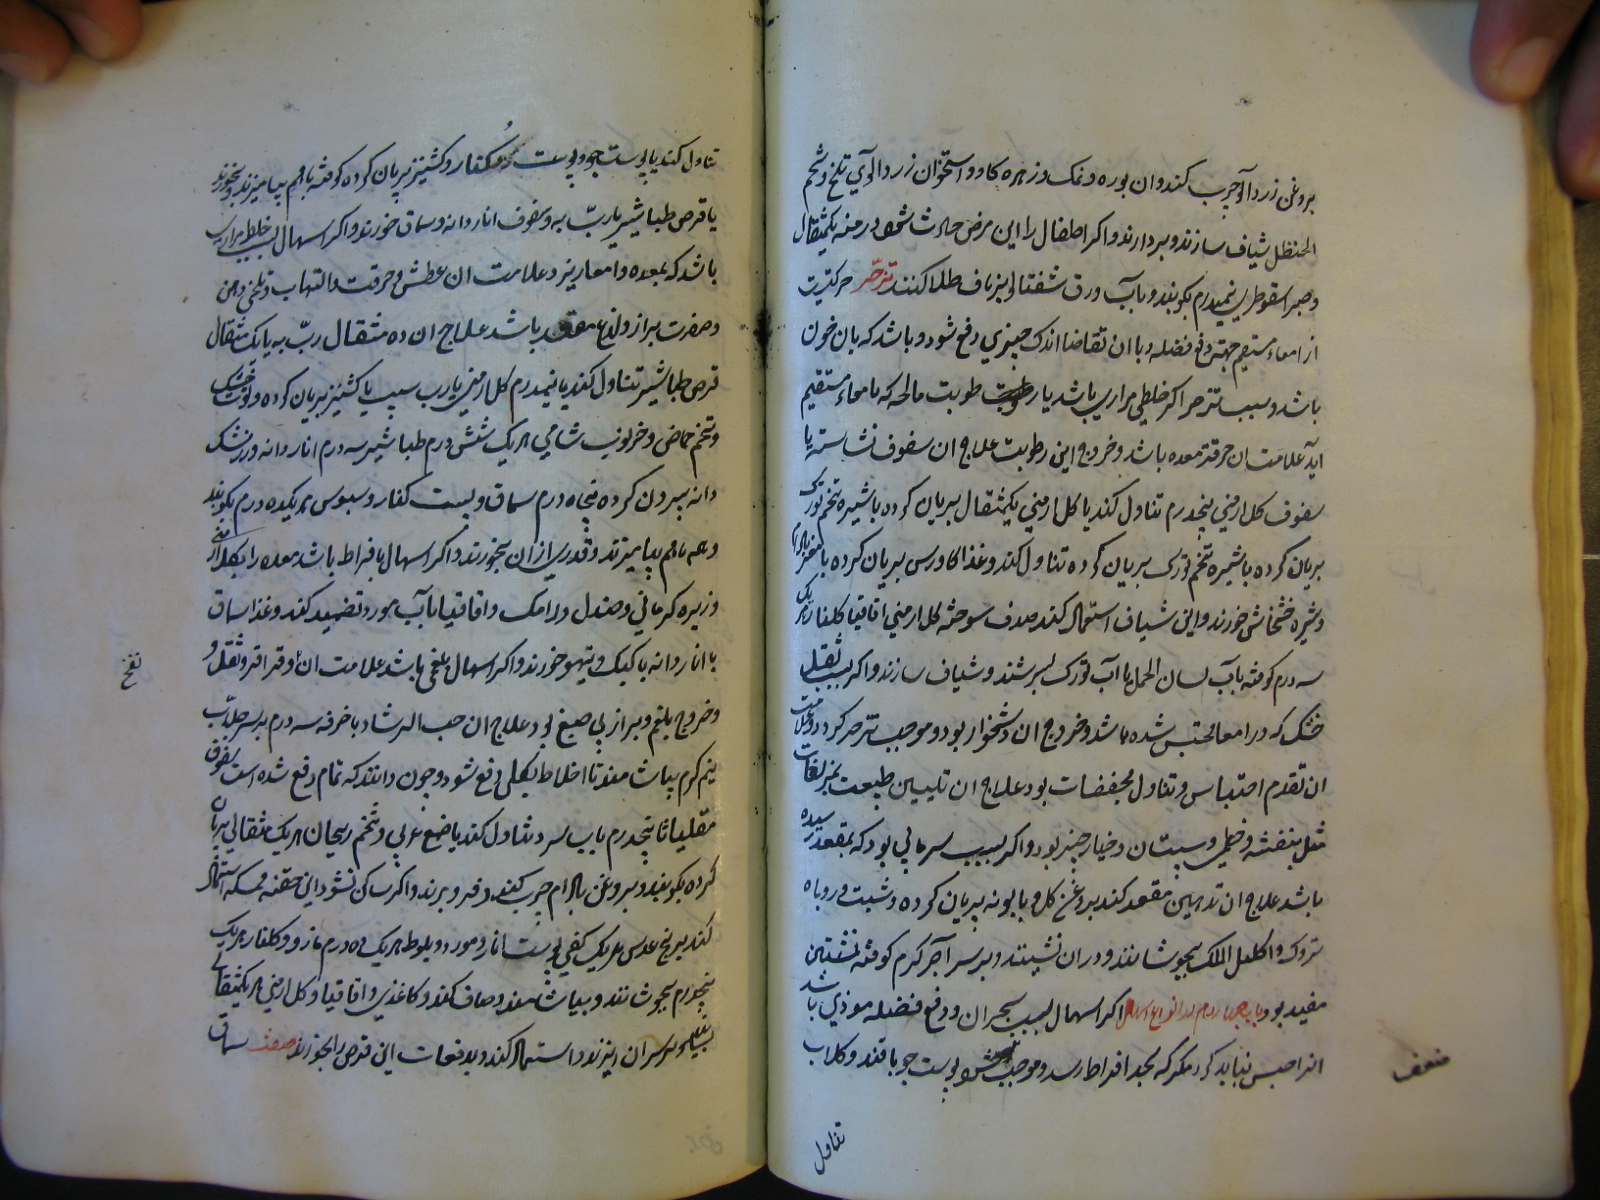 بروغن زردآلو چرب کنند و ان بوره و نمک و زهره کاو و استخوان زردآلوی تلخ و شحم
الحنظل شیاف سازند و بردارند و اکر اطفال را این مرض حادث شود درمنه یکمثقال
و صبر اسقوطری نیمدرم بکوبند و بآب ورق شفتالو بر ناف طلا کنند تزحر حرکتیست
از امعاء مستقیم جهة دفع فضله و با ان تقاضا اندک چیزی دفع شود و باشد که بان خون
باشد و سبب تزحر اکر خلطی مراری باشد یا رطوبت مالحه که بامعاء مستقیم
آید علامت ان حرقة معده باشد و خروج این رطوبت علاج ان سفوف نشاسته یا
سفوف کل ارمنی پنجدرم تناول کند یا کل ارمنی یکمثقال بریان کرده با شیره تخم تورک
بریان کرده با شیره تخم تورک بریان کرده تناول کند و غذا کاورس بریان کرده با مغز بادام
و شیره خشخاش خورند و این شیاف استعمال کند صدف سوخته کل ارمنی اقاقیا کلنار هر یک
سه درم کوفته بآب لسان الحمل یا آب تورک بسرشند و شیاف سازند و اکر بسبب ثقل
خشک که در امعا محتبس شده باشد و خروج ان دشخوار بود و موجب تزحر کردد و علامت
ان تقدم احتباس و تناول مجففات بود علاج ان تلیین طبیعت بمزلقات
مثل بنفشه و خطمی و سپستان و خیارچنبر بود و اکر بسبب سرمائی بود که بمقعد رسیده
باشد علاج ان تدهین مقعد کند بروغن کل و بابونه بریان کرده و شبت و روباه
تروک و اکلیل الملک بجوشانند و دران نشینند و بر سر آجر کرم کوفته نشستن
مفید بود باب چهاردهم در انواع اسهال اکر اسهال بسبب بحران و دفع فضله موذی باشد
انرا حبس نباید کرد مکر که بحد افراط رسد و موجب ضعف پوست جو با قند و کلاب
ضعف
تناول
تناول کند یا پوست جو و پوست کفنار و کشنیز بریان کرده کوفته با هم بیامیزند و بخورند
یا قرص طباشیر با ربّ به و سفوف انار دانه و سماق خورند و اکر اسهال بسبب خلط مراری
باشد که بمعده و امعا ریزد علامت ان عطش و حرقت و التهاب و تلخی دهن
و صفرت براز و لذع مقعد باشد علاج ان ده مثقال ربّ به با یک مثقال
قرص طباشیر تناول کند یا نیمدرم کل ارمنی با رب سیب یا کشنیز بریان کرده و توت خشک
و تخم حماض و خرنوب شامی هر یک شش درم طباشیر سه درم انار دانه و زرشک
دانه بیرون کرده پنجاه درم سماق و بست کنار و سبوس هر یک ده درم بکوبند
و همه با هم بیامیزند و قدری ازان بخورند و اکر اسهال بافراط باشد معده را بکل ارمنی
و زیره کرمانی و صندل و رامک و اقاقیا بآب مورد تضمید کند و غذا سماق
با انار دانه با کبک و تیهو خورند و اکر اسهال بلغمی باشد علامت ان وقراقر و ثقل و
نفخ
و خروج بلغم و براز بی صبغ بود علاج ان حب الرشاد با خرفه سه درم بر سر جلاّب
نیم کرم بیاشامند تا اخلاط بکلی دفع شود و چون دانند که تمام دفع شده است سفوف
مقلیاثا پنجدرم بآب سرد تناول کند یا صمغ عربی و تخم ریحان هر یک مثقالی بریان
کرده بکوبند و بروغن بادام چرب کنند و فرو برند و اکر ساکن نشود این حقنه ممسکه استعمال
کند برنج عدس هر یک کفی پوست انار و مورد و بلوط هر یک ده درم مازو و کلنار هر یک
پنجدرم بجوشانند و بپالایند و صاف کنند و کاغذ و اقاقیا و کل ارمنی هر یک مثقالی
بر سر ان ریزند و استعمال کند و بدفعات این قرص را بخورند صفت سماق